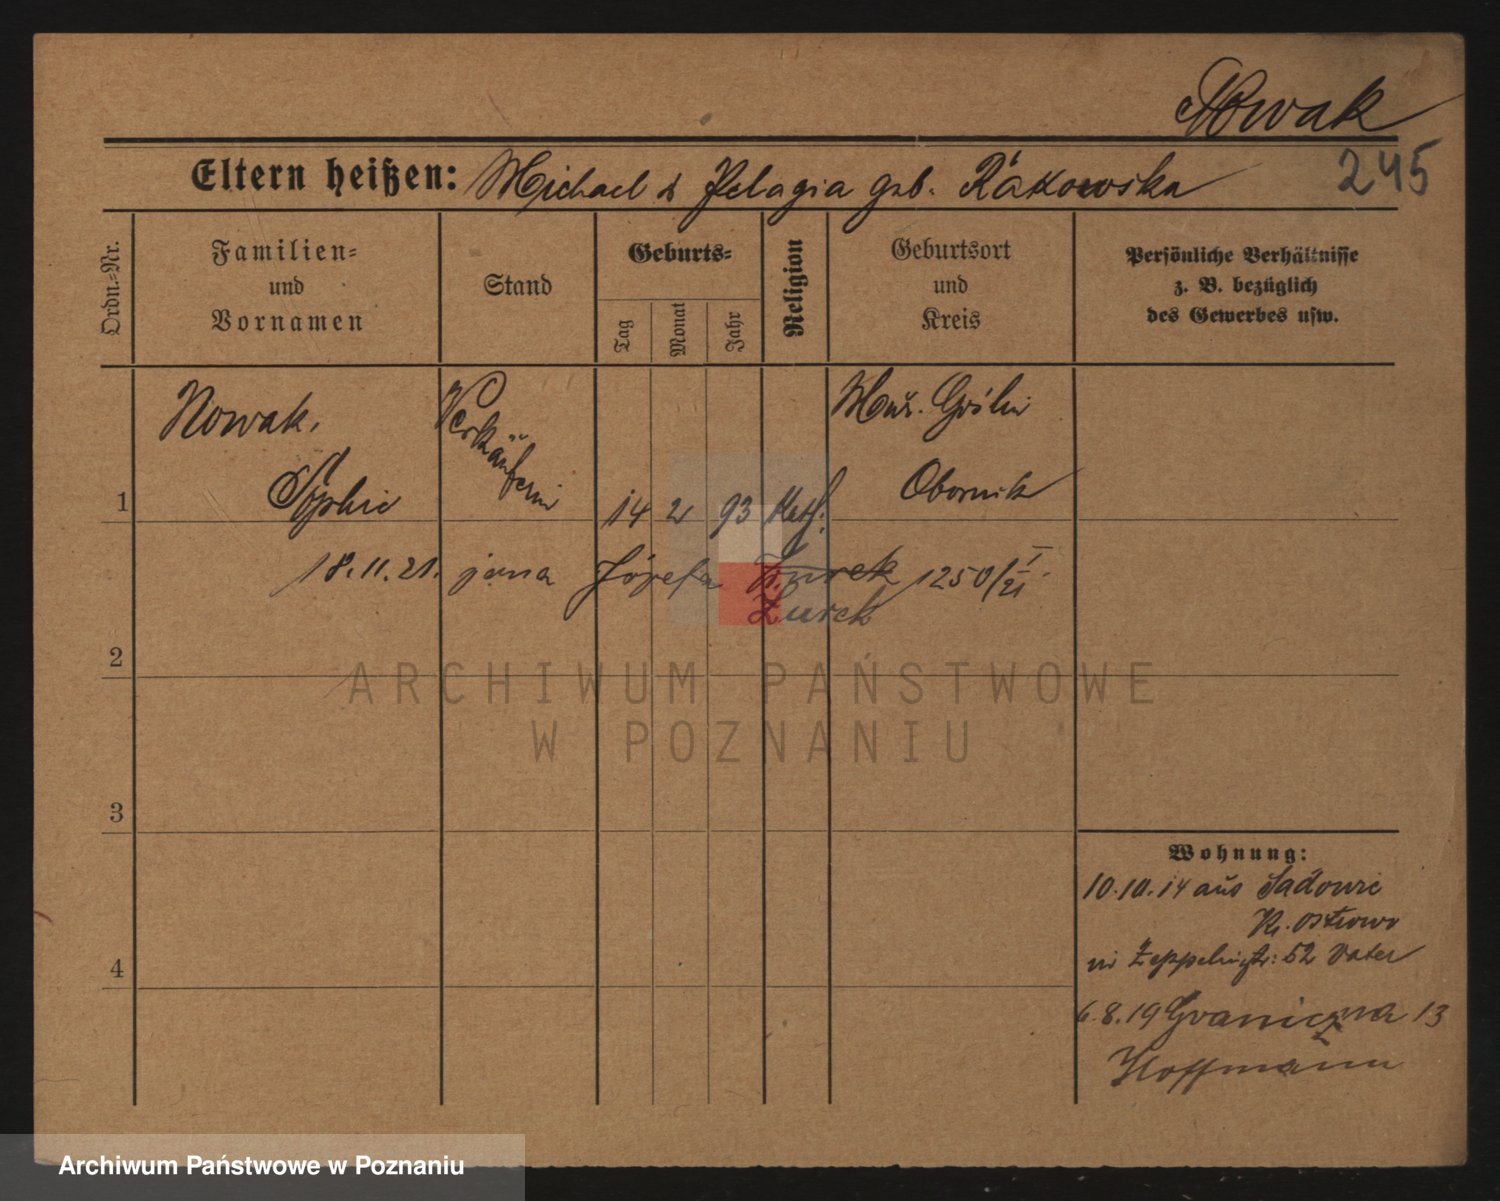 Nowak
245
Eltern heißen: Michael & Pelagia geb. Rakowska
Ordn.-Nr.
Familien-
und
Vornamen
Stand
Geburts-
Tag
Monat
Jahr
Religion
Geburtsort
und
Kreis
Persönliche Verhältnisse
z. B. bezüglich
des Gewerbes usw.
Nowak,
Sophie
Verkäuferin
14 2 93 Kath.
Mur. Goslin
Obornik
1
18.11.21. żona Józefa Żurek 1250/I 21
Żurek
2
3
4
Wohnung:
10.10.14 aus Sadowie
Kr. Ostrowo
in Zeppelinstr: 52 Vater
6.8.19 Graniczna 13
Hoffmann
ARCHIWUM PAŃSTWOWE
W POZNANIU
Archiwum Państwowe w Poznaniu